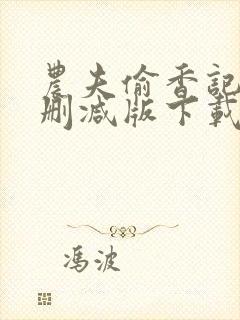 農夫偷香記
刪減版下載
馮波